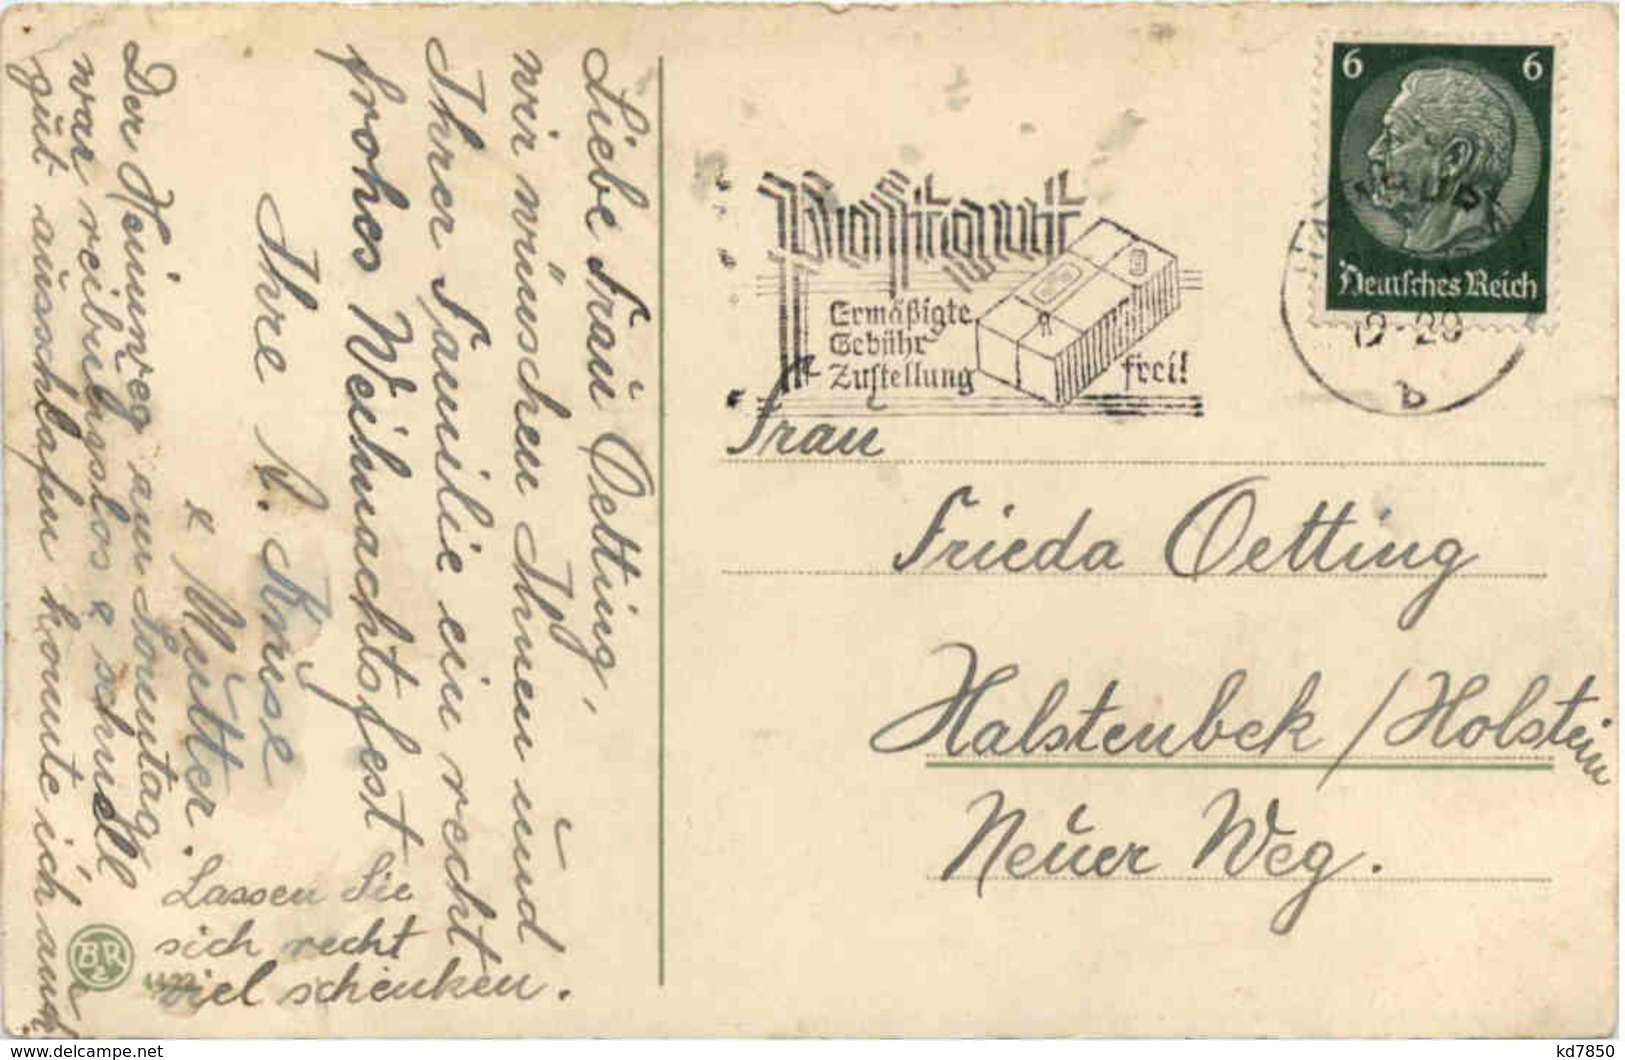 Liebe Frau Oetting,
wir wünschen Ihnen und
Ihrer Familie ein recht
frohes Weihnachtsfest
Ihre A. Kruse
& Mutter.
Der Heimweg am Sonntag
war reibungslos & schnell
gut ausschlafen konnte ich auch
Lassen Sie
sich recht
viel schenken.
B&R
Postgut
Ermäßigte
Gebühr
Zustellung frei!
6 6
Deutsches Reich
19-20
b
Frau
Frieda Oetting
Halstenbek / Holstein
Neuer Weg.
www.delcampe.net
kd7850